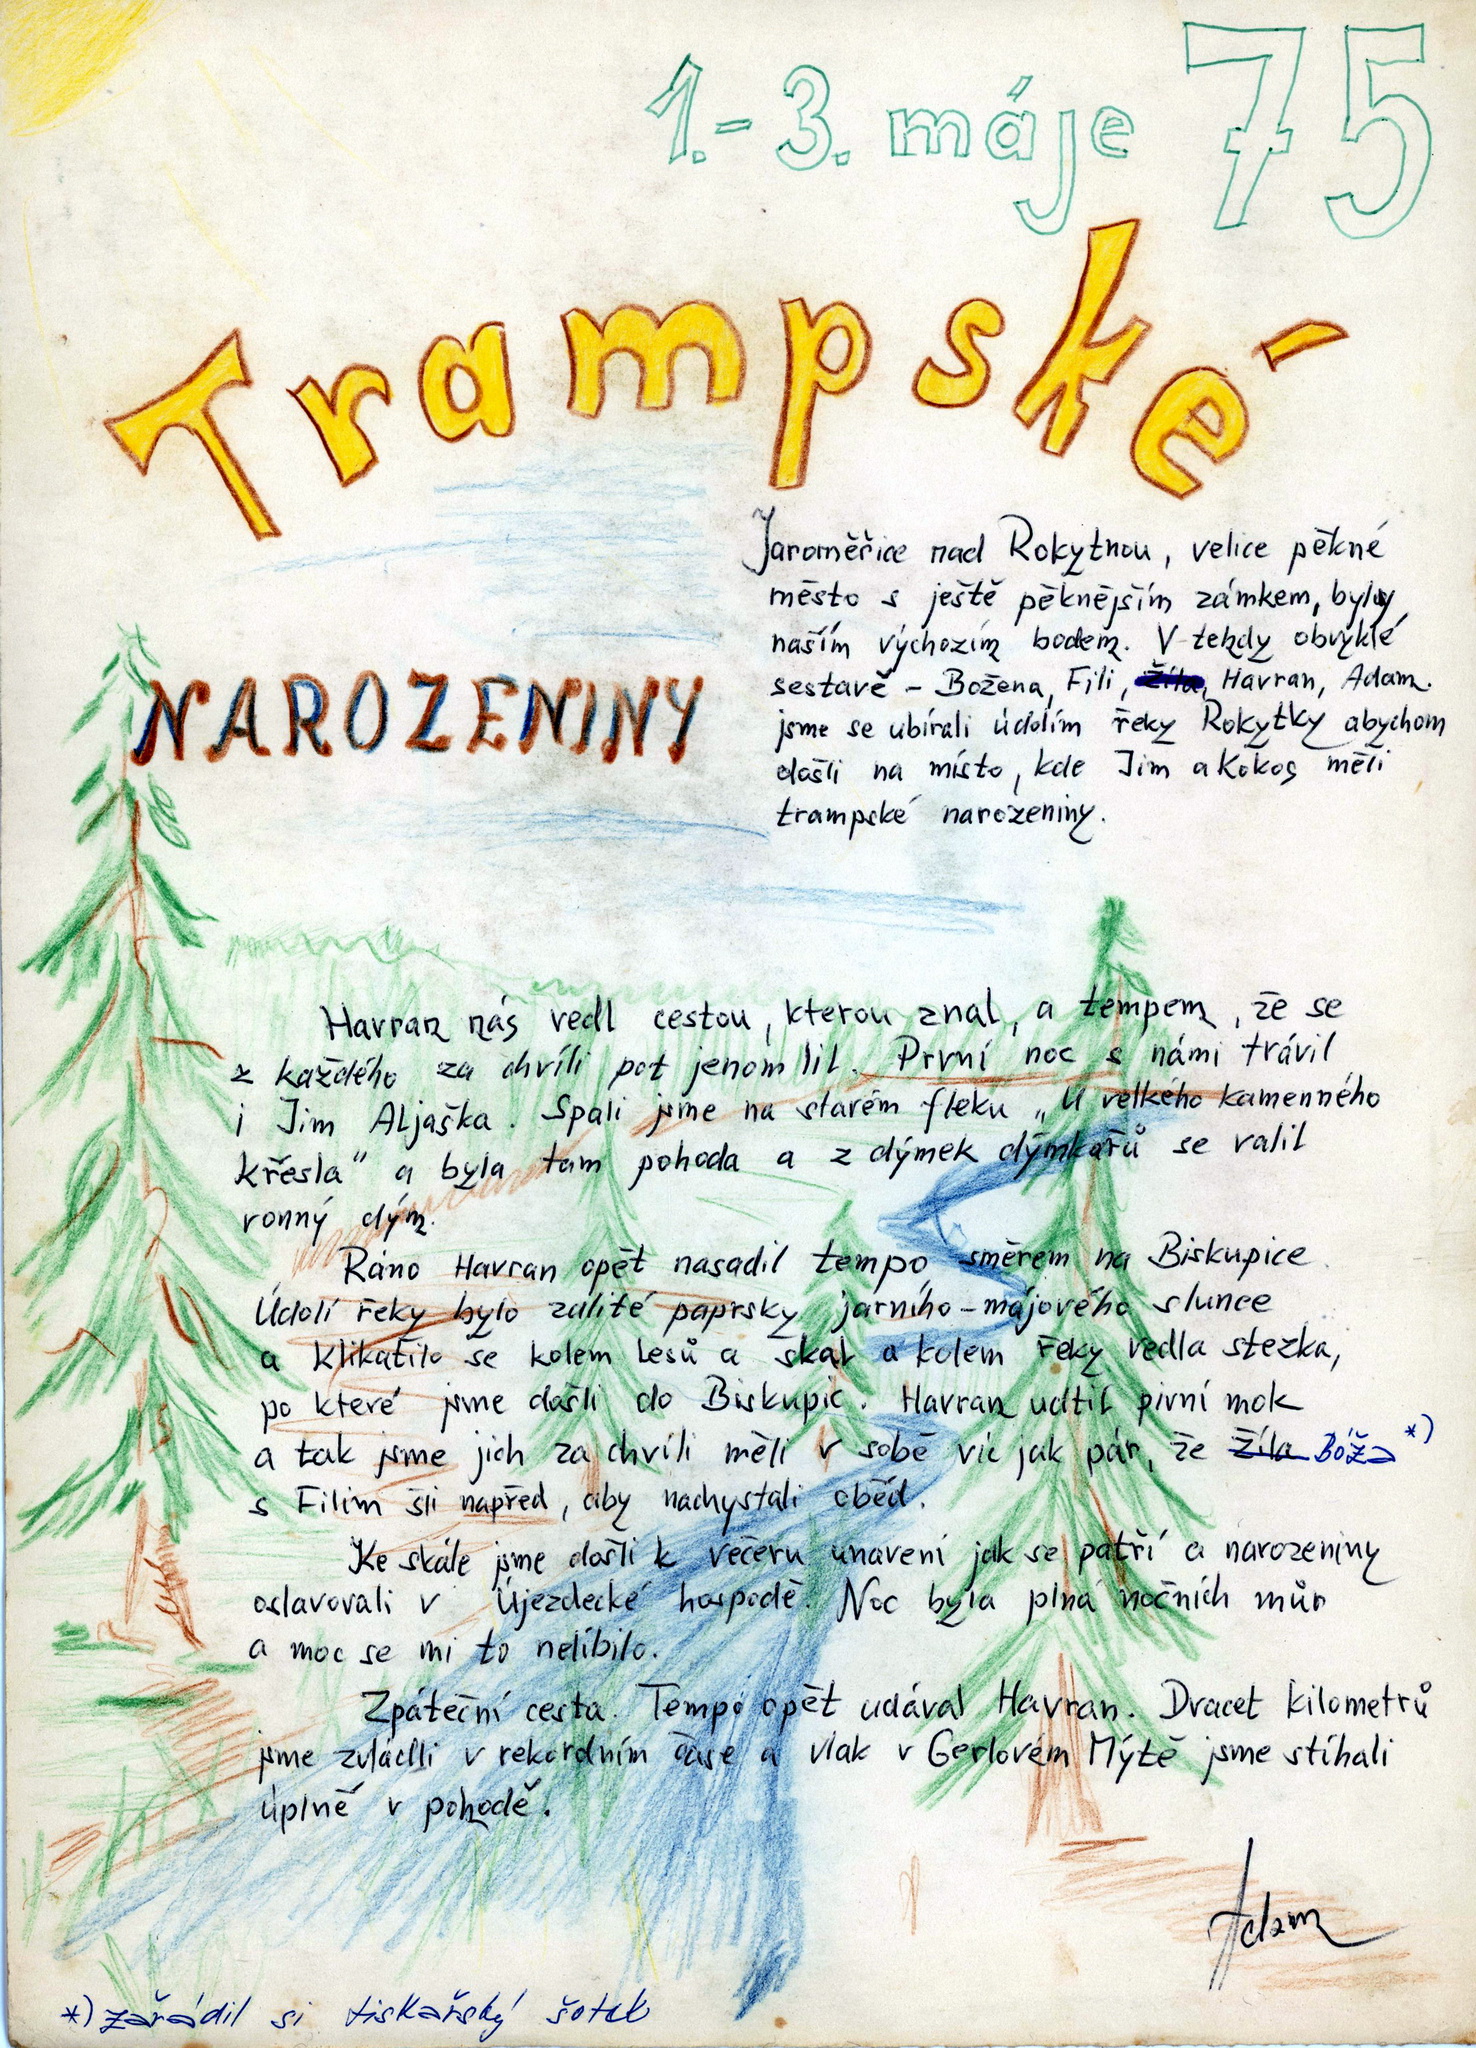 1.-3. máje 75
Trampské
NAROZENINY
Jaroměřice nad Rokytnou, velice pěkné
město s ještě pěknějším zámkem, byly
naším výchozím bodem. V tehdy obvyklé
sestavě - Božena, Fili, Žíla, Havran, Adam.
jsme se ubírali údolím řeky Rokytky abychom
došli na místo, kde Jim a Kokos měli
trampské narozeniny.
Havran nás vedl cestou, kterou znal, a tempem, že se
z každého za chvíli pot jenom lil. První noc s námi trávil
i Jim Aljaška. Spali jsme na starém fleku „U velkého kamenného
křesla" a byla tam pohoda a z dýmek dýmkařů se valil
vonný dým.
Ráno Havran opět nasadil tempo směrem na Biskupice.
Údolí řeky bylo zalité paprsky jarního-májového slunce
a klikatilo se kolem lesů a skal a kolem řeky vedla stezka,
po které jsme došli do Biskupic. Havran uctil pivní mok
a tak jsme jich za chvíli měli v sobě víc jak pár, že Žíla Bóža *)
s Filim šli napřed, aby nachystali oběd.
Ke skále jsme došli k večeru unavení jak se patří a narozeniny
oslavovali v Újezdecké hospodě. Noc byla plná nočních můr
a moc se mi to nelíbilo.
Zpáteční cesta. Tempo opět udával Havran. Dvacet kilometrů
jsme zvládli v rekordním čase a vlak v Gerlovém Mýtě jsme stíhali
úplně v pohodě.
Adam
*) zařádil si tiskařský šotek